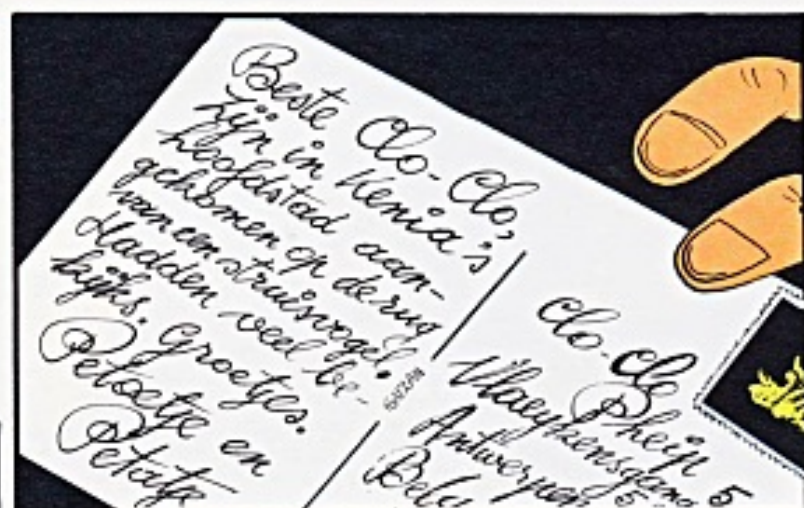 Beste Clo-Clo,
Zijn in Kenia's
hoofdstad aan-
gekomen op de rug
van een struisvogel.
Hadden veel be-
kijks. Groetjes.
Petoetje en
Petatje
Clo-Clo
Pheip
Vlaeykensgang 5
Antwerpen